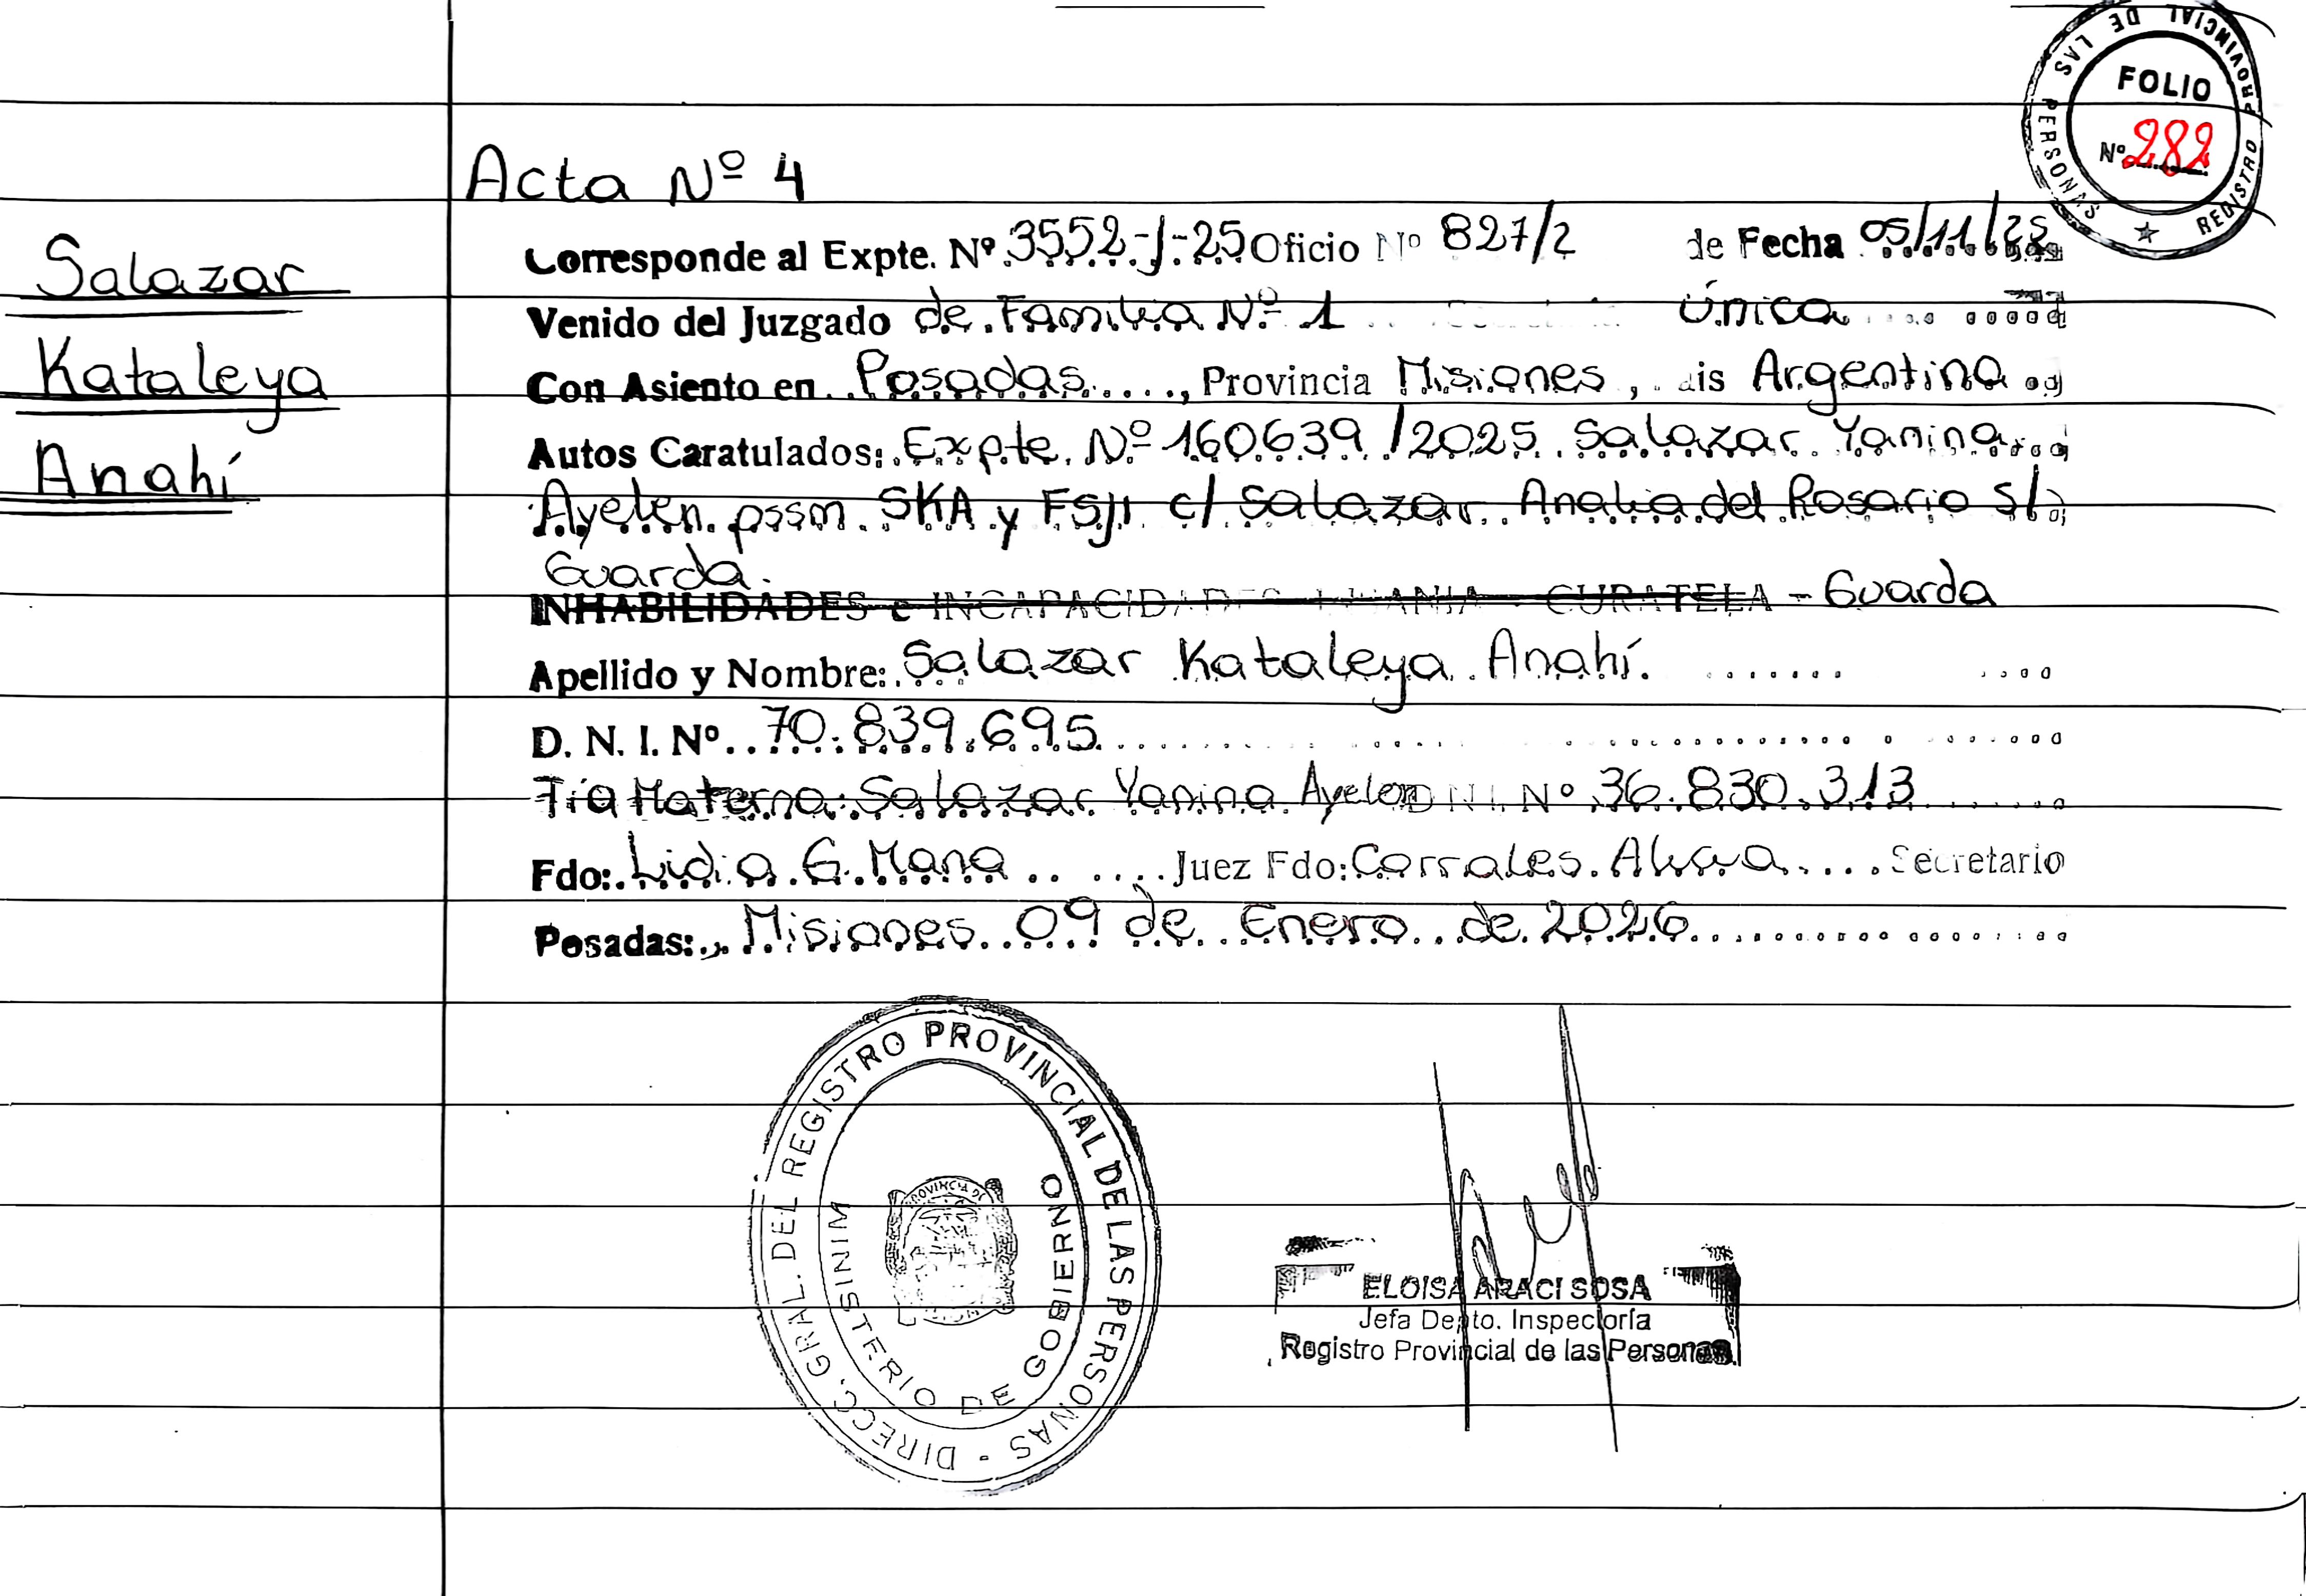 PROVINCIAL DE LAS PERSONAS ★ REGISTRO
FOLIO
Nº 282
Acta Nº 4
Salazar
Kataleya
Anahí
Corresponde al Expte. Nº 3552-J-25 Oficio Nº 827/2 de Fecha 05/11/25
Venido del Juzgado de Familia Nº 1 Única
Con Asiento en Posadas, Provincia Misiones, ais Argentina
Autos Caratulados: Expte. Nº 160639/2025 Salazar Yanina
Ayelén pssm. SKA y FSJI c/ Salazar Analia del Rosario s/
Guarda.
INHABILIDADES e INCAPACIDADES CURATELA - Guarda
Apellido y Nombre: Salazar Kataleya Anahí.
D. N. I. Nº 70.839.695
Tía Materna: Salazar Yanina Ayelen DNI. Nº 36.830.313
Fdo: Lidia G. Mana Juez Fdo: Corrales. Secretario
Posadas:, Misiones 09 de Enero de 2026
DIRECC. GRAL. DEL REGISTRO PROVINCIAL DE LAS PERSONAS -
MINISTERIO DE GOBIERNO
PROVINCIA DE
ELOISA ARACI SOSA
Jefa Depto. Inspectoría
Registro Provincial de las Personas